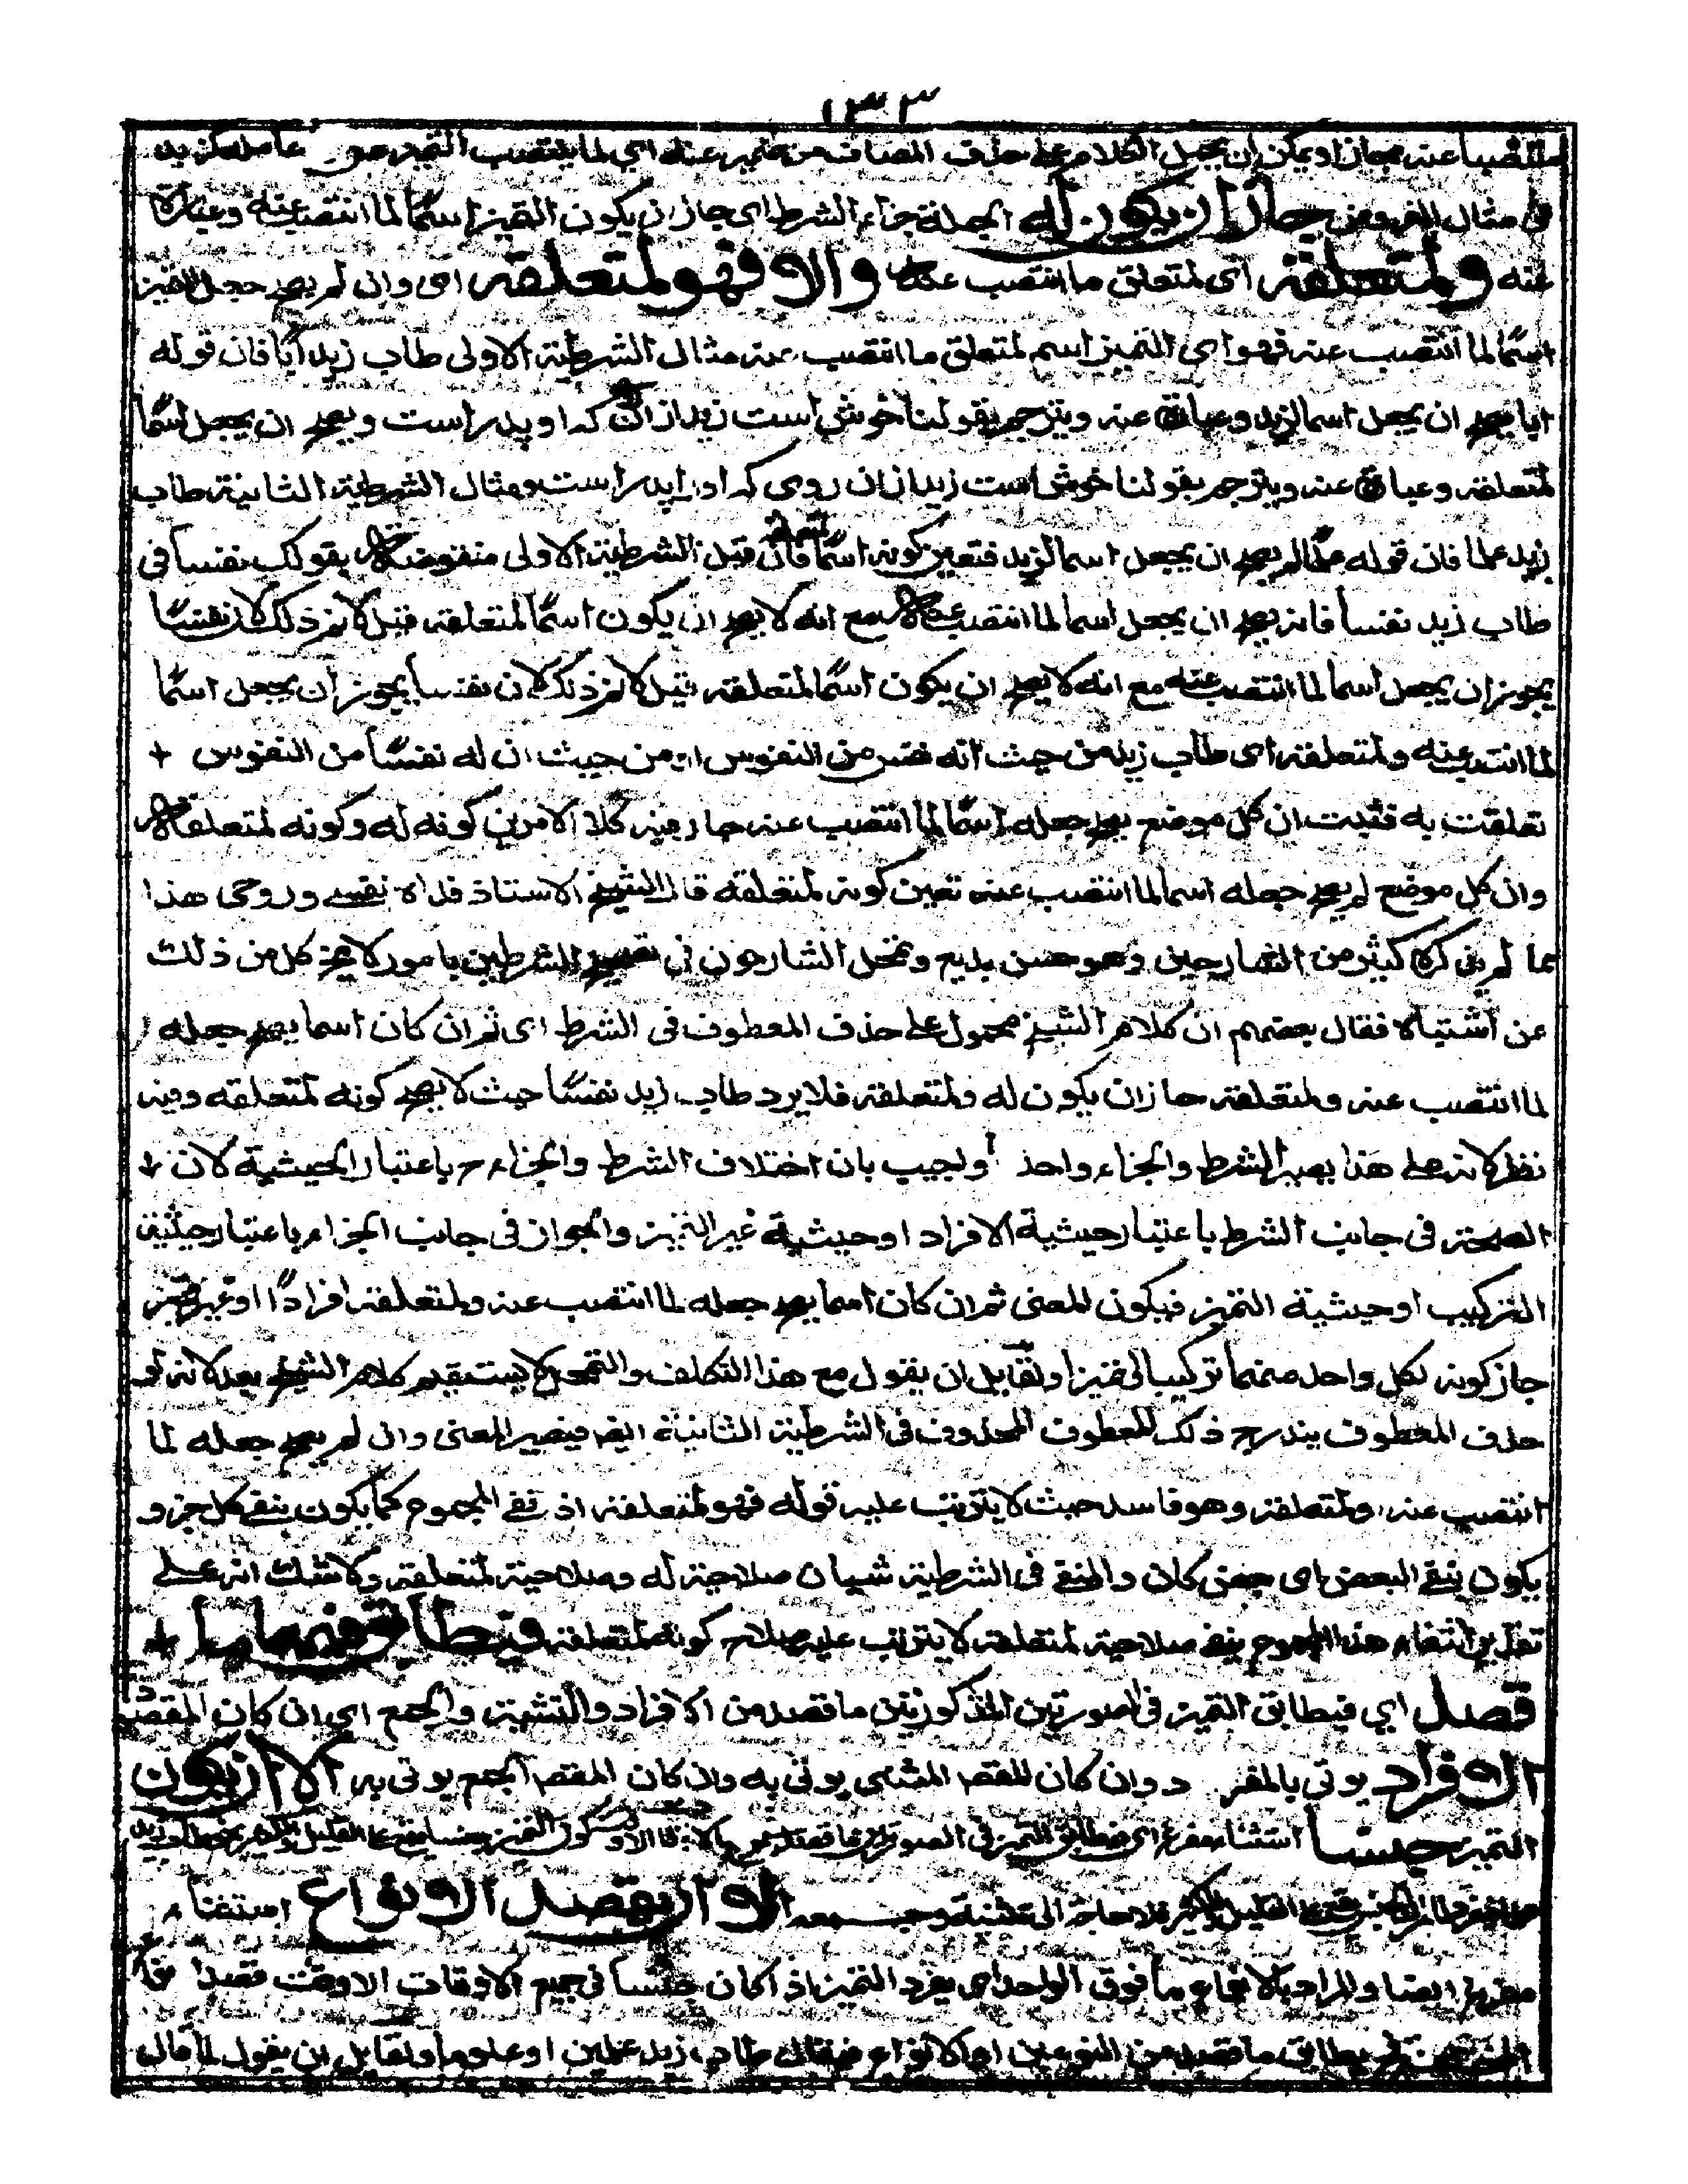 ١٣٣
انتصبا عنه مجازا ويمكن ان يحمل الكلام على حذف المضاف من ضمير عنه اي لما ينتصب التميز عن عامله كزيد
في مثال المفروض جاز ان يكون له الجملة جزاء الشرط اى جاز ان يكون التميز اسمًا لما انتصب عنه وعبارة
عنه ولمتعلقه اى لمتعلق ما انتصب عنه والا فهو لمتعلقه اى وان لم يصح جعل التميز
اسمًا لما انتصب عنه فهو اى التميز اسم لمتعلق ما انتصب عنه مثال الشرطية الاولى طاب زيد ابًا فان قوله
ابا يصح ان يجعل اسما لزيد وعبارة عنه ويترجم بقولنا خوش است زيد ازان كه او پدر است ويصح ان يجعل اسمًا
لمتعلقه وعبارة عنه ويترجم بقولنا خوش است زيد ازان روى كه اورا پدر است ومثال الشرطية الثانية طاب
زيد علما فان قوله علمًا لم يصح ان يجعل اسما لزيد فتعين كونه اسمًا لمتعلقه فان قيل الشرطية الاولى منقوضة بقولك نفسا في
طاب زيد نفسا فانه يصح ان يجعل اسما لما انتصب عنه مع انه لا يصح ان يكون اسمًا لمتعلقه قيل لا نم ذلك لان نفسًا
يجوز ان يجعل اسما لما انتصب عنه مع انه لا يصح ان يكون اسمًا لمتعلقه قيل لا نم ذلك لان نفسا يجوز ان يجعل اسمًا
لما انتصب عنه ولمتعلقه اى طاب زيد من حيث انه نفس من النفوس او من حيث ان له نفسًا من النفوس
تعلقت به فثبت ان كل موضع يصح جعله اسمًا لما انتصب عنه جاز فيه كلا الامرين كونه له وكونه لمتعلقه
وان كل موضع لم يصح جعله اسما لما انتصب عنه تعين كونه لمتعلقه قال الشيخ الاستاذ فداه نفسى وروحى هذا
مما لم يذكره كثير من الشارحين وهو حسن بديع وتمحل الشارحون في تفسير الشرطين بامور لا يخ كل من ذلك
عن اشتباه فقال بعضهم ان كلام الشيخ محمول على حذف المعطوف فى الشرط اى ثم ان كان اسما يصح جعله
لما انتصب عنه ولمتعلقه جاز ان يكون له ولمتعلقه فلا يرد طاب زيد نفسًا حيث لا يصح كونه لمتعلقه وفيه
نظر لانه على هذا يصير الشرط والجزاء واحدا واجيب بان اختلاف الشرط والجزاء ح باعتبار الحيثية لان
الصحة فى جانب الشرط باعتبار حيثية الافراد او حيثية غير التميز والجواز فى جانب الجزاء باعتبار حيثية
التركيب او حيثية التميز فيكون المعنى ثم ان كان اسما يصح جعله لما انتصب عنه ولمتعلقه افرادًا او غير تميز
جاز كونه لكل واحد منهما تركيبا او تميزا ولقايل ان يقول مع هذا التكلف والتمحل لا يستقيم كلام الشيخ بعد لانه لو
حذف المعطوف يندرج ذلك المعطوف المحذوف فى الشرطية الثانية ايضا فيصير المعنى وان لم يصح جعله لما
انتصب عنه ولمتعلقه وهو فاسد حيث لا يترتب عليه قوله فهو لمتعلقه اذ نفى المجموع كما يكون بنفى كل جزء
يكون بنفى البعض اى بعض كان والمنفى فى الشرطية شيئان صلاحيته له وصلاحيته لمتعلقه ولا شك انه على
تقدير انتفاء هذا المجموع بنفى صلاحيته لمتعلقه لا يترتب عليه صلاح كونه لمتعلقه فيطابق فيهما ما
قصد اي فيطابق التميز فى الصورتين المذكورتين ما قصد من الافراد والتثنية والجمع اى ان كان المقصود
الافراد يوتي بالمفرد وان كان المقصد المثنى يوتى به وان كان المقصد الجمع يوتى به الا ان يكون
التميز جنسا استثناء مفرغ اى فيطابق التميز فى الصورتين ما قصد
فلا حاجة الى تثنيته وجمعه الا ان يقصد الانواع استثناء
مفرغ ايضا والمراد بالانواع ما فوق الواحد اى يفرد التميز اذا كان جنسا فى جميع الاوقات الا وقت قصد
يطابق ما قصد من النوعين او الانواع فيقال طاب زيد علمين او علوما ولقايل ان يقول لما قال